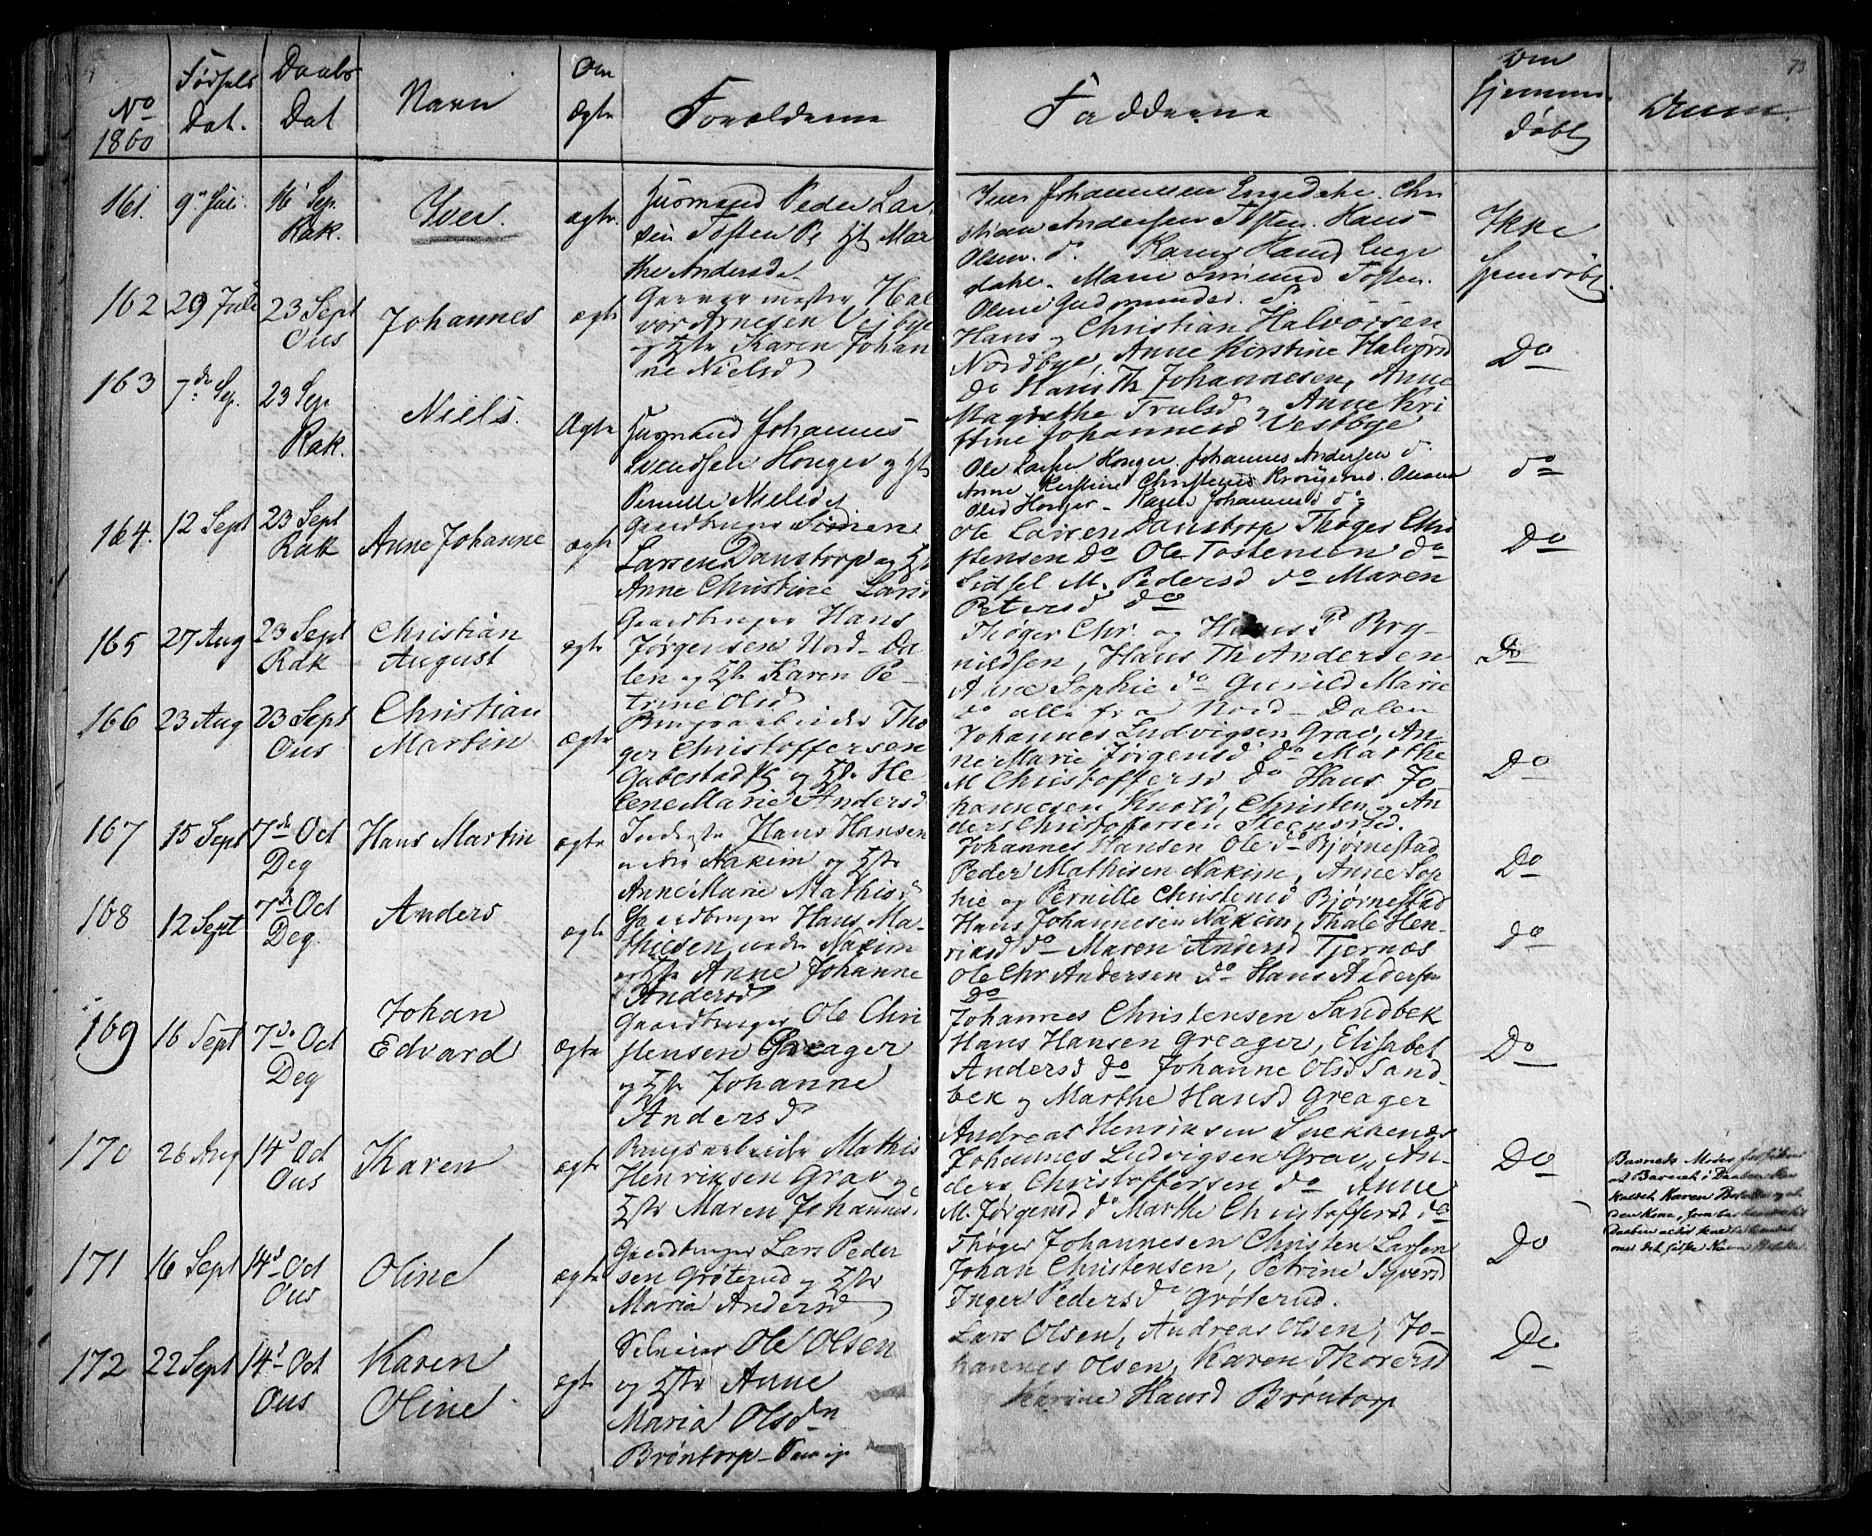 No
1860
Fødsels
Dat.
Daabs
Dat
Navn
Om
ægte
Forældrene
Fadderne
Om
hjemme
døbt
Anm.
73
161. 9de Juli 16 Sep. Rak. Iver. ægte
Husmand Peder Lar
sen Toften Pe Hst Mar
the Andersd
Iver Johannesen Engedahl. Chri
stian Andersen Toften. Hans
Olsen do. Karen Hansd Enge
dahl. Marie Toften.
Oline Gudmundsd.
Ikke
hjemdøbt
162 29 Juli 23 Sept Ous Johannes ægte
Garvermester Hal
vor Arnesen Vejbye
og Hst Karen Johan
ne Nielsd
Hans og Christian Halvorsen
Nordbye, Anne Kirstine Halvorsd
do Hans Th Johannesen, Anne
Magrethe Trulsd og Anne Kri
stine Johannesd Vestbye
Do
163 7de Sep. 23 Sep Rak. Niels. Ægte
Husmand Johannes
Svendsen Honger og Hst
Pernille Nielsd
Ole Larsen Honger. Johannes Andersen do.
Anne Kirstine Christensd Krongerud.
Olsd Honger. Karen Johannesd do
do
164. 12 Sept 23 Sept Rak Anne Johanne ægte
Gaardbruger Simen
Larsen Danstorp og Hst
Anne Christine Larsd
Ole Larsen Danstorp Thøger Chri
stensen do Ole Tostensen do
Sidsel M. Pedersd do Maren
Petersd do
Do
165 27 Aug 23 Sept Rak Christian August ægte
Gaardbruger Hans
Jørgensen Nord-Da
len og Hst Karen Pe-
trine Olsd
Thøger Chr. og Hans P Bry-
nildsen, Hans Th Andersen
Anne Sophie do Gunild Marie
do alle fra Nord-Dalen
Do
166 23 Aug 23 Sept Ous Christian Martin ægte
Brugsarbeider Thø
ger Christoffersen
Gabestad og Hst He
lene Marie Andersd
Johannes Ludvigsen Grav, An-
ne Marie Jørgensd do Marthe
M Christoffersd do Hans Jo
hannesen Knold, Christen og An
ders Christoffersen Stensrud.
Do
167 15 Sept 7de Oct Deg Hans Martin ægte
Inderste Hans Hansen
under Nakim og Hst
Anne Marie Mathisd
Johannes Hansen Ole do Bjørnestad
Peder Mathisen Nakim, Anne Sop
hie og Pernille Christensd Bjørnestad
Do
168 12 Sept 7de Oct Deg. Anders ægte
Gaardbruger Hans Ma-
thiesen under Nakim
og Hst Anne Johanne
Andersd
Hans Johannesen Nakim, Thale Hen-
riksd do Maren Andersd Tjernæs
Ole Chr Andersen do Hans Andersen
Do
do
169 16 Sept 7de Oct Deg Johan Edvard ægte
Gaardbruger Ole Chri
stensen Greager
og Hst Johanne
Andersd
Johannes Christensen Sandbek
Hans Hansen Greager, Elisabet
Andersd do Johanne Olsd Sand-
bek og Marthe Hansd Greager
Do
170 26 Aug 14d Oct Ous Karen ægte
Brugsarbeider Mathis
Henriksen Grav og
Hst Maren Johannesd
Andreas Henriksen Snekkenæs
Johannes Ludvigsen Grav, An-
ders Christoffersen do Anne
M. Jørgensd do Marthe Christoffersd do
Do
Barnets Moder
at Barnet i Daaben
kaldet Karen
den Kone, som
Daaben
med det Navn
171 16 Sept 14d Oct Ous Oline ægte
Gaardbruger Lars Peder
sen Grøterud og Hst
Maria Andersd
Thøger Johannesen Christen Larsen
Johan Christensen, Petrine Syversd
Inger Pedersd Grøterud.
Do
172 22 Sept 14d Oct Ous Karen Oline ægte
Selveier Ole Olsen
og Hst Anne
Maria Olsdn
Brøntorp
Lars Olsen, Andreas Olsen, Jo-
hannes Olsen, Karen Thorersd
Karine Hansd Brøntorp
Do